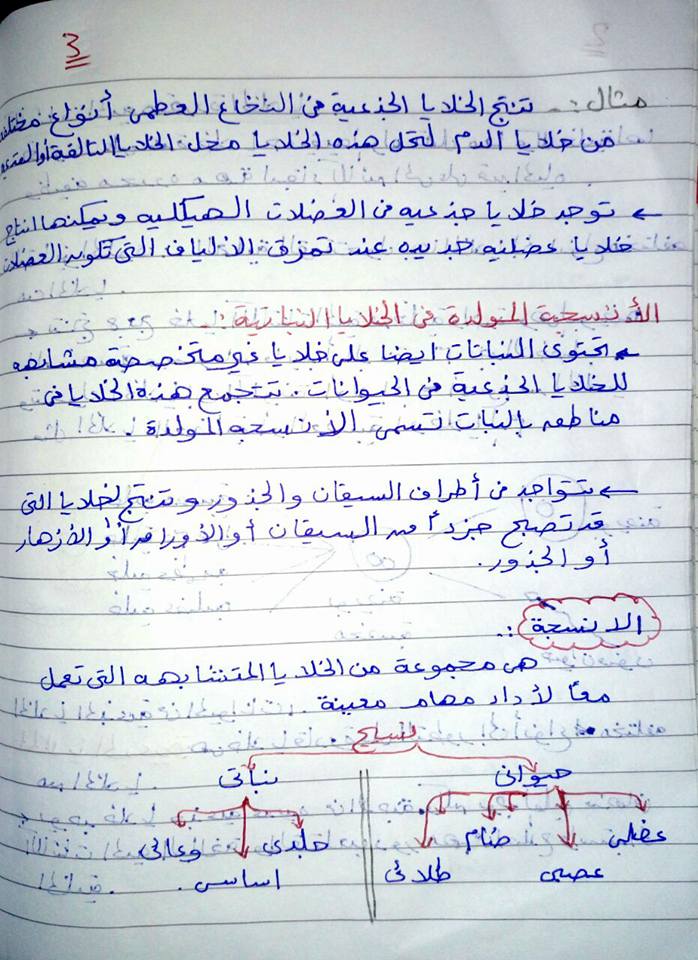 3
مثال :- تنتج الخلايا الجذعية في النخاع العظمى أنواع مختلفة
من خلايا الدم لتحل هذه الخلايا محل الخلايا التالفة أو
← توجد خلايا جذعيه في العضلات الهيكليه ويمكنها انتاج
خلايا عضليه جديده عند تمزق الالياف التى تكون العضلات
الأنسجة المولدة في الخلايا النباتية :-
← تحتوى النباتات ايضا على خلايا غير متخصصة مشابهه
للخلايا الجذعية في الحيوانات . تتجمع هذه الخلايا في
مناطق بالنبات تسمى الأنسجه المولدة .
← تتواجد في أطراف السيقان والجذور و تنتج الخلايا التى
قد تصبح جزءاً من السيقان أو الأوراق أو الأزهار
أو الجذور .
الانسجة :-
هى مجموعة من الخلايا المتشابهه التى تعمل
معاً لأداء مهام معينة .
نسيج
حيوانى نباتى
عضلى ضام جلدى وعائى
عصبى طلائى اساسى .